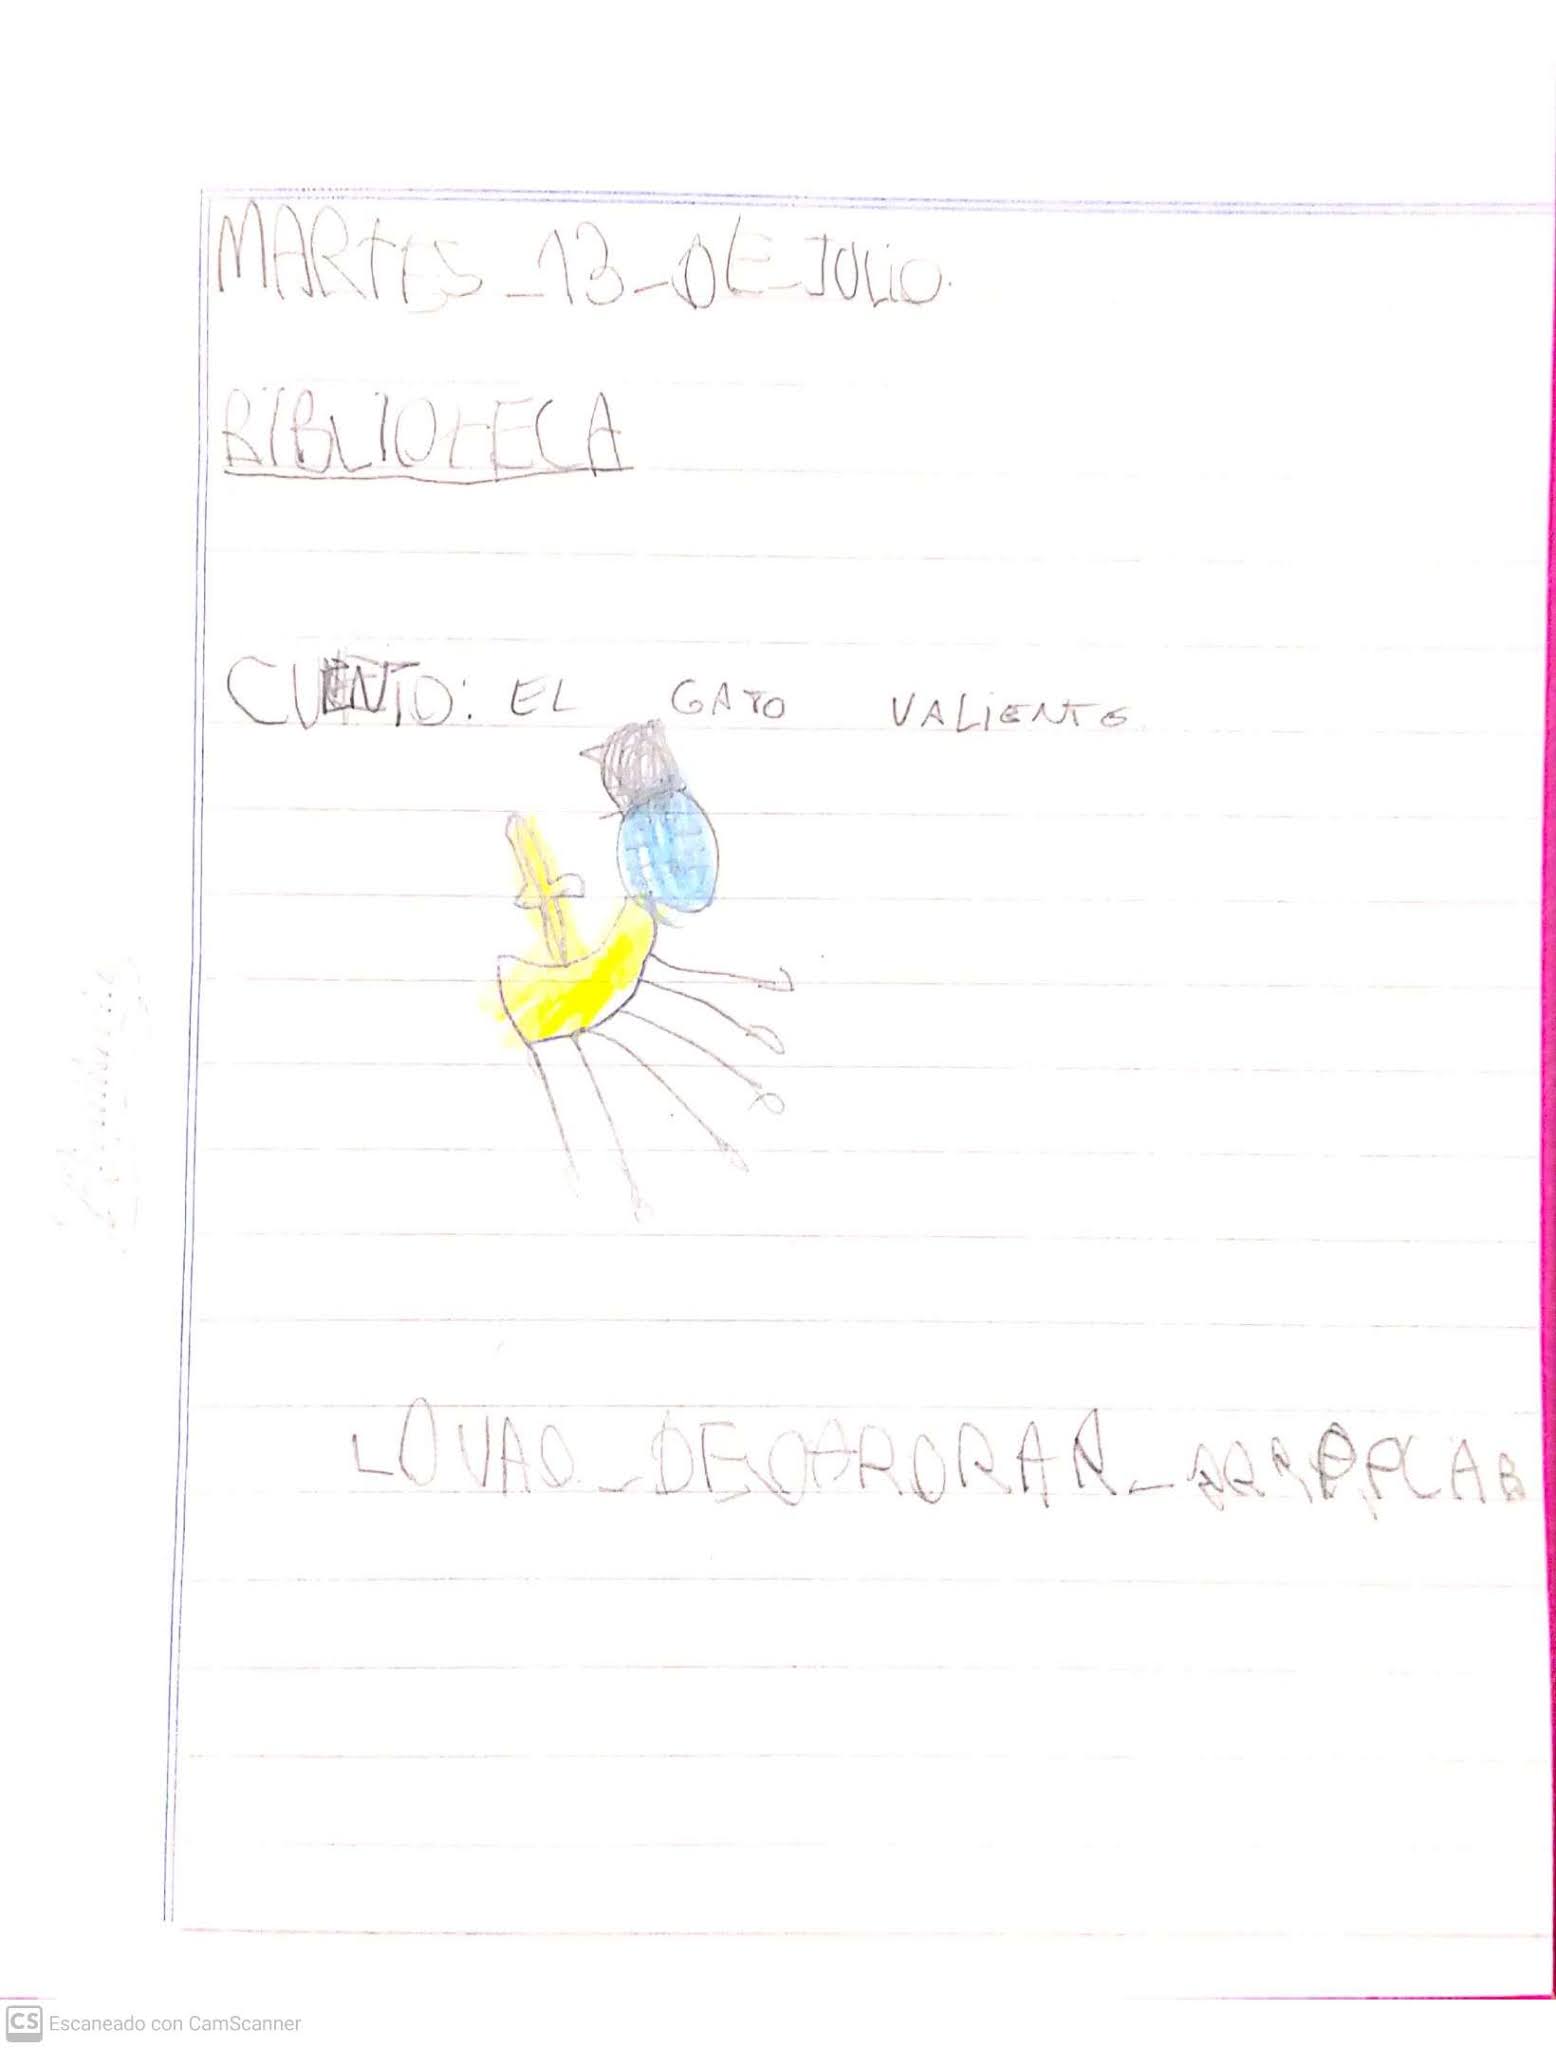 MARTES_13_DE_JULIO.
BIBLIOTECA
CUENTO: EL GATO VALIENTE
LOVAO_
CS Escaneado con CamScanner